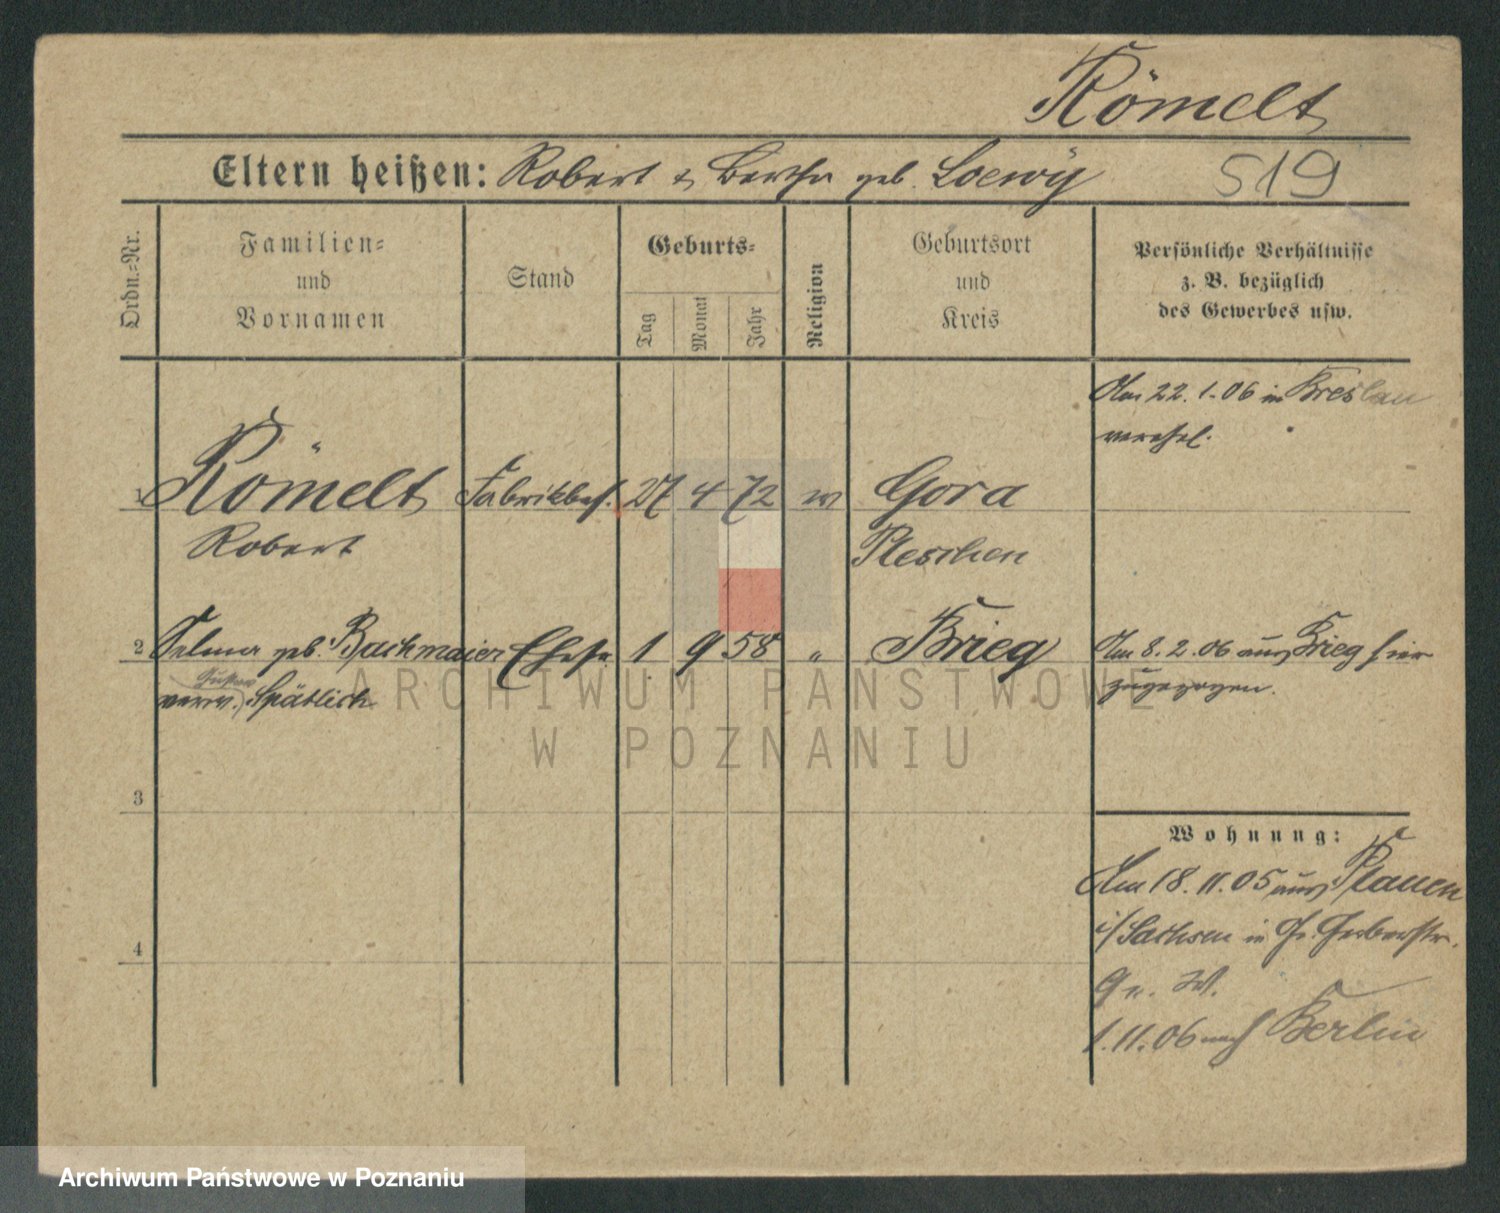 Römelt
Eltern heißen: Robert & Bertha geb. Loewÿ
519
Ordn.-Nr.
Familien-
und
Vornamen
Stand
Geburts-
Tag
Monat
Jahr
Religion
Geburtsort
und
Kreis
Persönliche Verhältnisse
z. B. bezüglich
des Gewerbes usw.
Am 22. 1. 06 in Breslau
verehel.
1 Römelt Fabrikbes. 27 4 72 Gora
Robert Pleschen
2 Selma geb. Bachmaier Ehefr. 1. 9 58 „ Brieg Am 8. 2. 06 aus Brieg hier
verw. Spätlich zugezogen.
3
4
Wohnung:
Am 18. 11. 05 aus Plauen
i/Sachsen in Gr. Gerberstr.
9
1. 11. 06 nach Berlin
ARCHIWUM PAŃSTWOWE
W POZNANIU
Archiwum Państwowe w Poznaniu